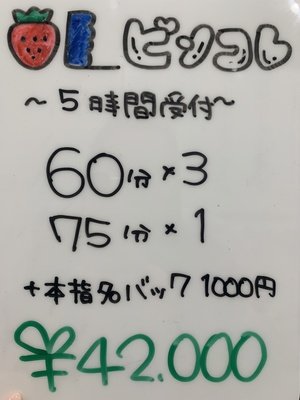 OL ピンコレ
～5時間受付～
60分×3
75分×1
+本指%バック 1000円
¥42.000